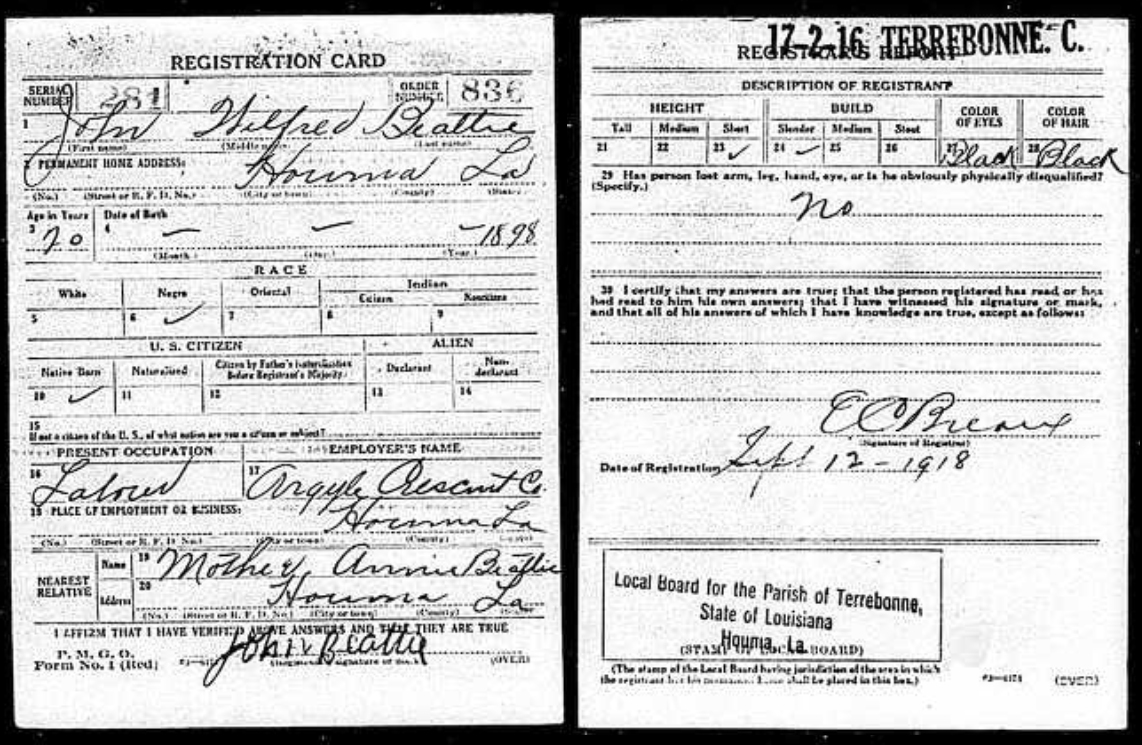 REGISTRATION CARD
SERIAL NUMBER 281 ORDER NUMBER 836
1 John Wilfred Beattie
(First name) (Middle name) (Last name)
2 PERMANENT HOME ADDRESS:
Houma La
(No.) (Street or R. F. D. No.) (City or town) (County) (State)
Age in Years Date of Birth
3 20 4 — — -1898
(Month.) (Day.) (Year.)
RACE
White Negro Oriental Indian
Citizen Noncitizen
5 6 ✓ 7 8 9
U. S. CITIZEN ALIEN
Native Born Naturalized Citizen by Father's Naturalization Before Registrant's Majority Declarant Non-declarant
10 ✓ 11 12 13 14
15
If not a citizen of the U. S., of what nation are you a citizen or subject?
PRESENT OCCUPATION EMPLOYER'S NAME
16 Laborer 17 Argyle Crescent Co.
18 PLACE OF EMPLOYMENT OR BUSINESS:
Houma La
(No.) (Street or R. F. D. No.) (City or town) (County) (State)
NEAREST RELATIVE
Name 19 Mother, Annie Beattie
Address 20 Houma La
(No.) (Street or R. F. D. No.) (City or town) (County) (State)
I AFFIRM THAT I HAVE VERIFIED ABOVE ANSWERS AND THAT THEY ARE TRUE
P. M. G. O.
Form No. 1 (Red) John Beattie (OVER)
17-2-16 TERREBONNE. C.
REGISTRAR'S REPORT
DESCRIPTION OF REGISTRANT
HEIGHT BUILD COLOR OF EYES COLOR OF HAIR
Tall Medium Short Slender Medium Stout
21 22 23 ✓ 24 ✓ 25 26 27 Black 28 Black
29 Has person lost arm, leg, hand, eye, or is he obviously physically disqualified?
(Specify.)
no
30 I certify that my answers are true; that the person registered has read or has
had read to him his own answers; that I have witnessed his signature or mark,
and that all of his answers of which I have knowledge are true, except as follows:
E C Breaux
(Signature of Registrar)
Date of Registration Sept 12-1918
Local Board for the Parish of Terrebonne,
State of Louisiana
Houma, La.
(STAMP OF LOCAL BOARD)
(The stamp of the Local Board having jurisdiction of the area in which
the registrant has his permanent home shall be placed in this box.)
(OVER)